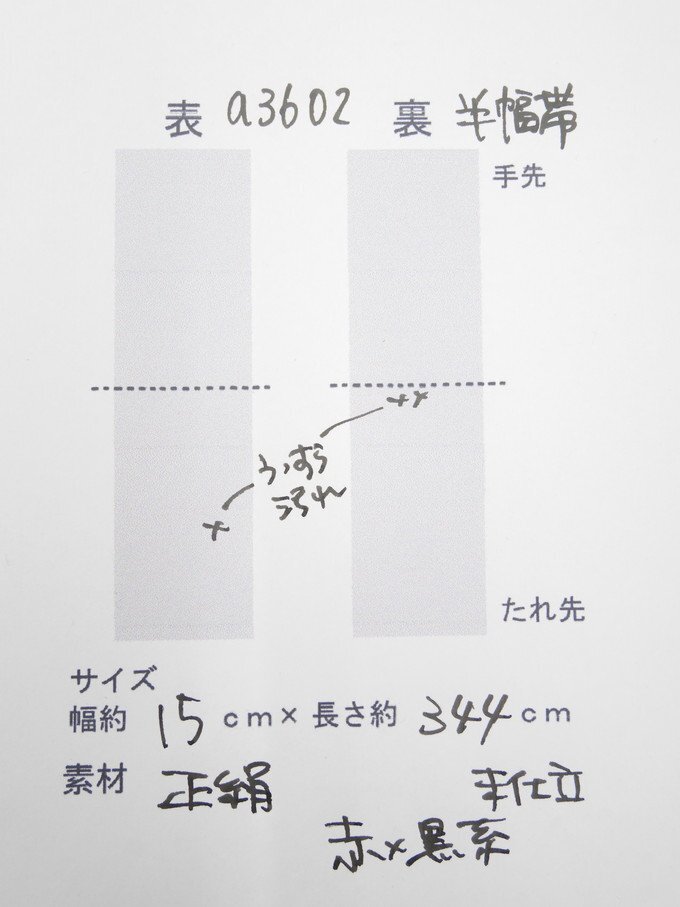 表 a3602 裏 半幅帯
手先
うっすら
汚れ
たれ先
サイズ
幅約 15 cm×長さ約 344 cm
素材 正絹 未仕立
赤×黒系